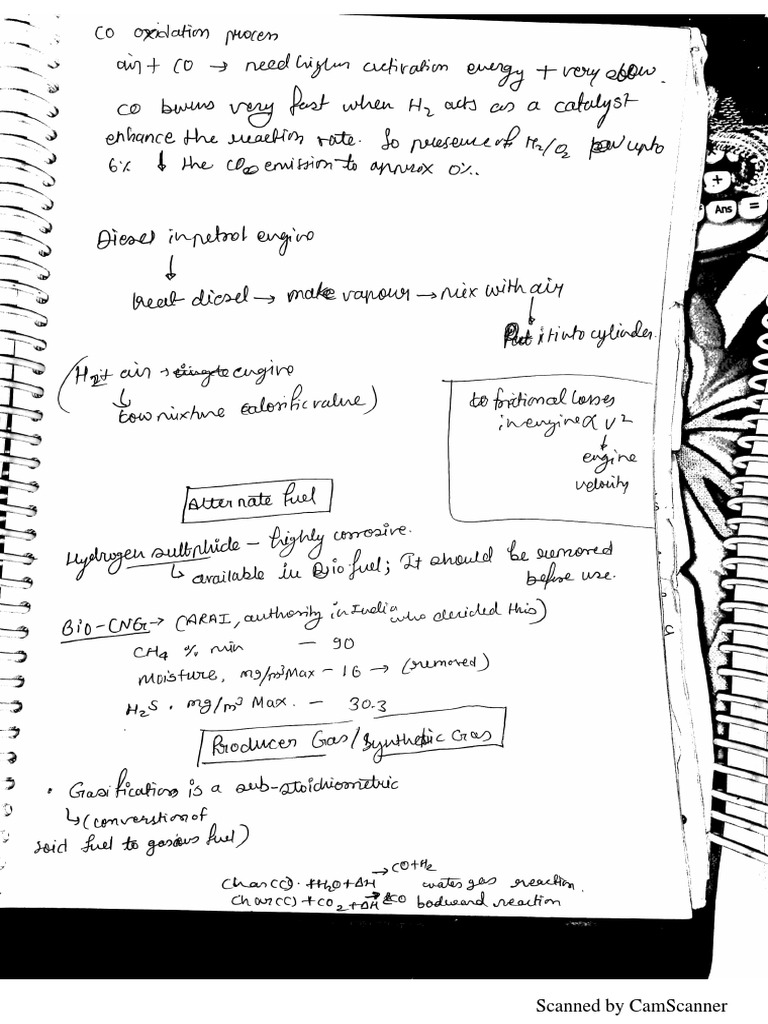 CO oxidation process
air + CO → need higher activation energy + very slow.
CO burns very fast when H2 acts as a catalyst
enhance the reaction rate. So presence of H2/O2 upto
6% ↓ the CO emission to approx 0%.
Diesel in petrol engine
↓
heat diesel → make vapour → mix with air
↓
Put it into cylinder.
(H2 + air → engine
↳ low mixture calorific value)
to frictional losses
in engine ∝ V²
↓
engine
velocity
Alternate fuel
Hydrogen sulphide – highly corrosive.
↳ available in Bio fuel; It should be removed
before use.
Bio-CNG → (ARAI, authority in India who decided this)
CH4 % min — 90
Moisture, mg/m³ Max – 16 → (removed)
H2S . mg/m³ Max. – 30.3
Producer Gas/Synthetic Gas
• Gasification is a sub-stoichiometric
↳ (converstion of
soid fuel to gasious fuel)
Char(C) + H2O + ΔH → CO + H2 water gas reaction.
Char(C) + CO2 + ΔH → 2CO bodward reaction
Ans
=
+
Scanned by CamScanner